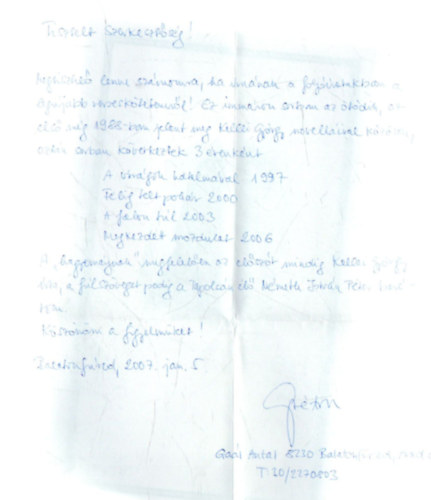 Tisztelt Szerkesztőség!
Megtisztelő lenne számomra, ha írnának a folyóiratukban a
legújabb verseskötetemről! Ez immáron sorban az ötödik, az
első még 1988-ban jelent meg Kellei György novelláival közösen,
aztán sorban következtek 3 évenként
A virágok hatalmával 1997
Félig telt pohár 2000
A falon túl 2003
Megkezdett mozdulat 2006
A „hagyománynak" megfelelően az előszót mindig Kellei György
írta, a fülszöveget pedig a Tapolcán élő Németh István Péter
Köszönöm a figyelmüket!
Balatonfüred, 2007. jan. 5.
Gaál Antal 8230 Balatonfüred,
T: 30/2270803